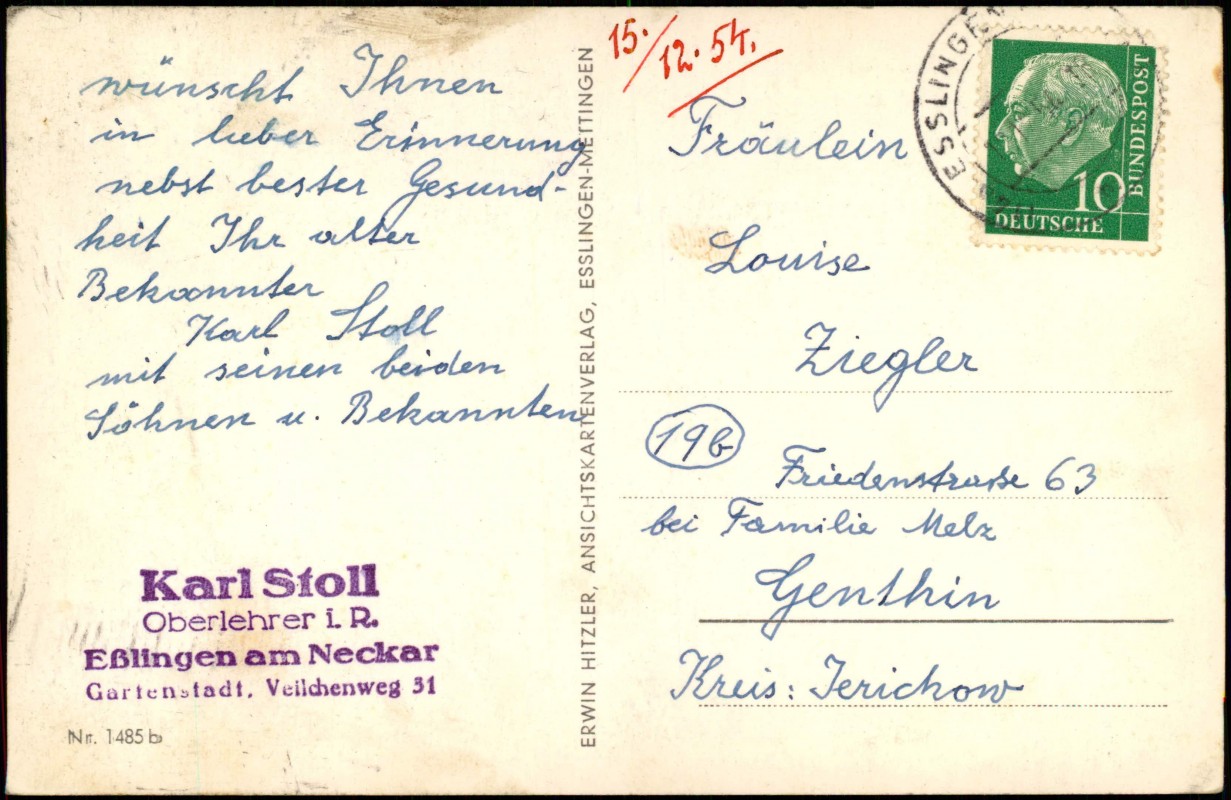 wünscht Ihnen
in lieber Erinnerung
nebst bester Gesund-
heit Ihr alter
Bekannter
Karl Stoll
mit seinen beiden
Söhnen u. Bekannten
Karl Stoll
Oberlehrer i. R.
Eßlingen am Neckar
Gartenstadt, Veilchenweg 31
Nr. 1485 b
ERWIN HITZLER, ANSICHTSKARTENVERLAG, ESSLINGEN-METTINGEN
15./12.54.
Fräulein
Louise
Ziegler
19b
Friedenstraße 63
bei Familie Melz
Genthin
Kreis: Jerichow
ESSLINGEN
10
DEUTSCHE
BUNDESPOST